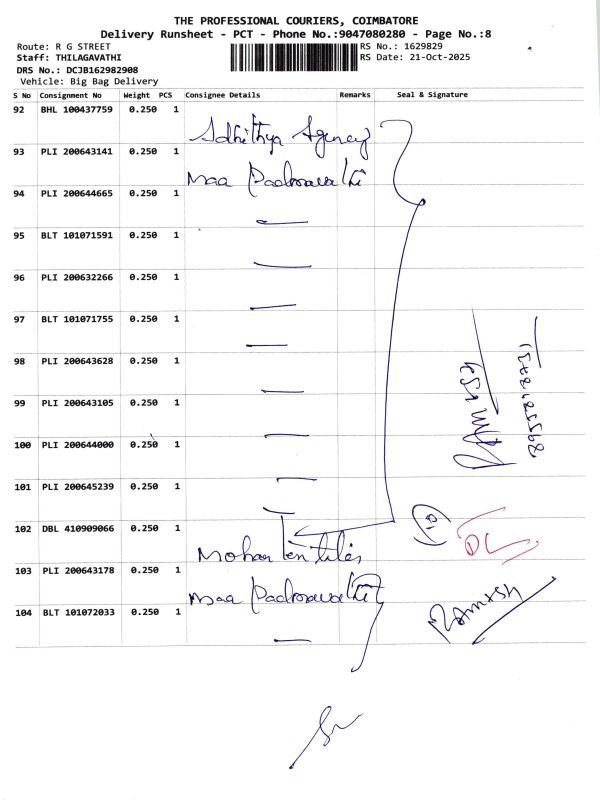 THE PROFESSIONAL COURIERS, COIMBATORE
Delivery Runsheet - PCT - Phone No.:9047080280 - Page No.:8
Route: R G STREET
RS No.: 1629829
Staff: THILAGAVATHI
RS Date: 21-Oct-2025
DRS No.: DCJB162982908
Vehicle: Big Bag Delivery
S No Consignment No Weight PCS Consignee Details Remarks Seal & Signature
92 BHL 100437759 0.250 1 Adhithya Agency
93 PLI 200643141 0.250 1 Maa Padmavathi
94 PLI 200644665 0.250 1 —
95 BLT 101071591 0.250 1 —
96 PLI 200632266 0.250 1 —
97 BLT 101071755 0.250 1 —
98 PLI 200643628 0.250 1 —
99 PLI 200643105 0.250 1 —
100 PLI 200644000 0.250 1 —
101 PLI 200645239 0.250 1 —
102 DBL 410909066 0.250 1 Mohan Textiles
103 PLI 200643178 0.250 1 Maa Padmavathi
104 BLT 101072033 0.250 1 —
DL
RAMESH